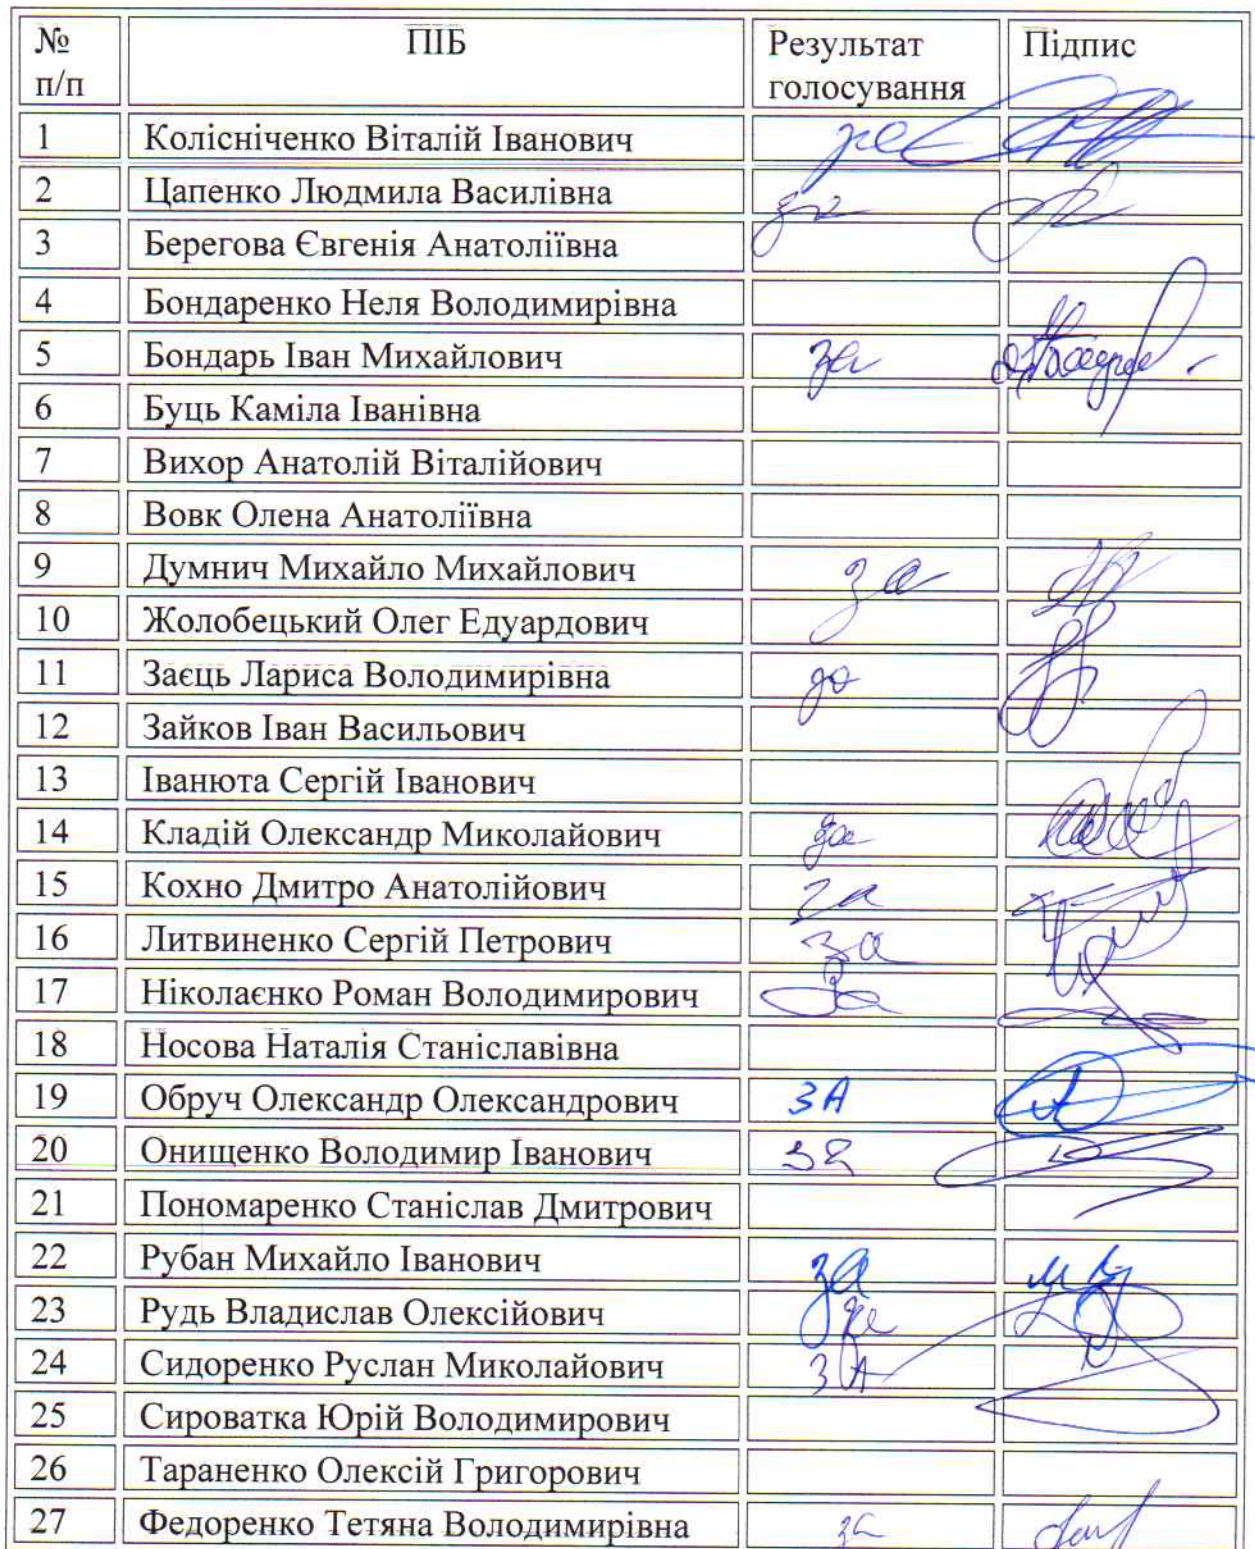 № п/п ПІБ Результат голосування Підпис
1 Колісніченко Віталій Іванович за
2 Цапенко Людмила Василівна за
3 Берегова Євгенія Анатоліївна
4 Бондаренко Неля Володимирівна
5 Бондарь Іван Михайлович за
6 Буць Каміла Іванівна
7 Вихор Анатолій Віталійович
8 Вовк Олена Анатоліївна
9 Думнич Михайло Михайлович за
10 Жолобецький Олег Едуардович
11 Заєць Лариса Володимирівна за
12 Зайков Іван Васильович
13 Іванюта Сергій Іванович
14 Кладій Олександр Миколайович за
15 Кохно Дмитро Анатолійович за
16 Литвиненко Сергій Петрович за
17 Ніколаєнко Роман Володимирович за
18 Носова Наталія Станіславівна
19 Обруч Олександр Олександрович ЗА
20 Онищенко Володимир Іванович за
21 Пономаренко Станіслав Дмитрович
22 Рубан Михайло Іванович за
23 Рудь Владислав Олексійович за
24 Сидоренко Руслан Миколайович ЗА
25 Сироватка Юрій Володимирович
26 Тараненко Олексій Григорович
27 Федоренко Тетяна Володимирівна за